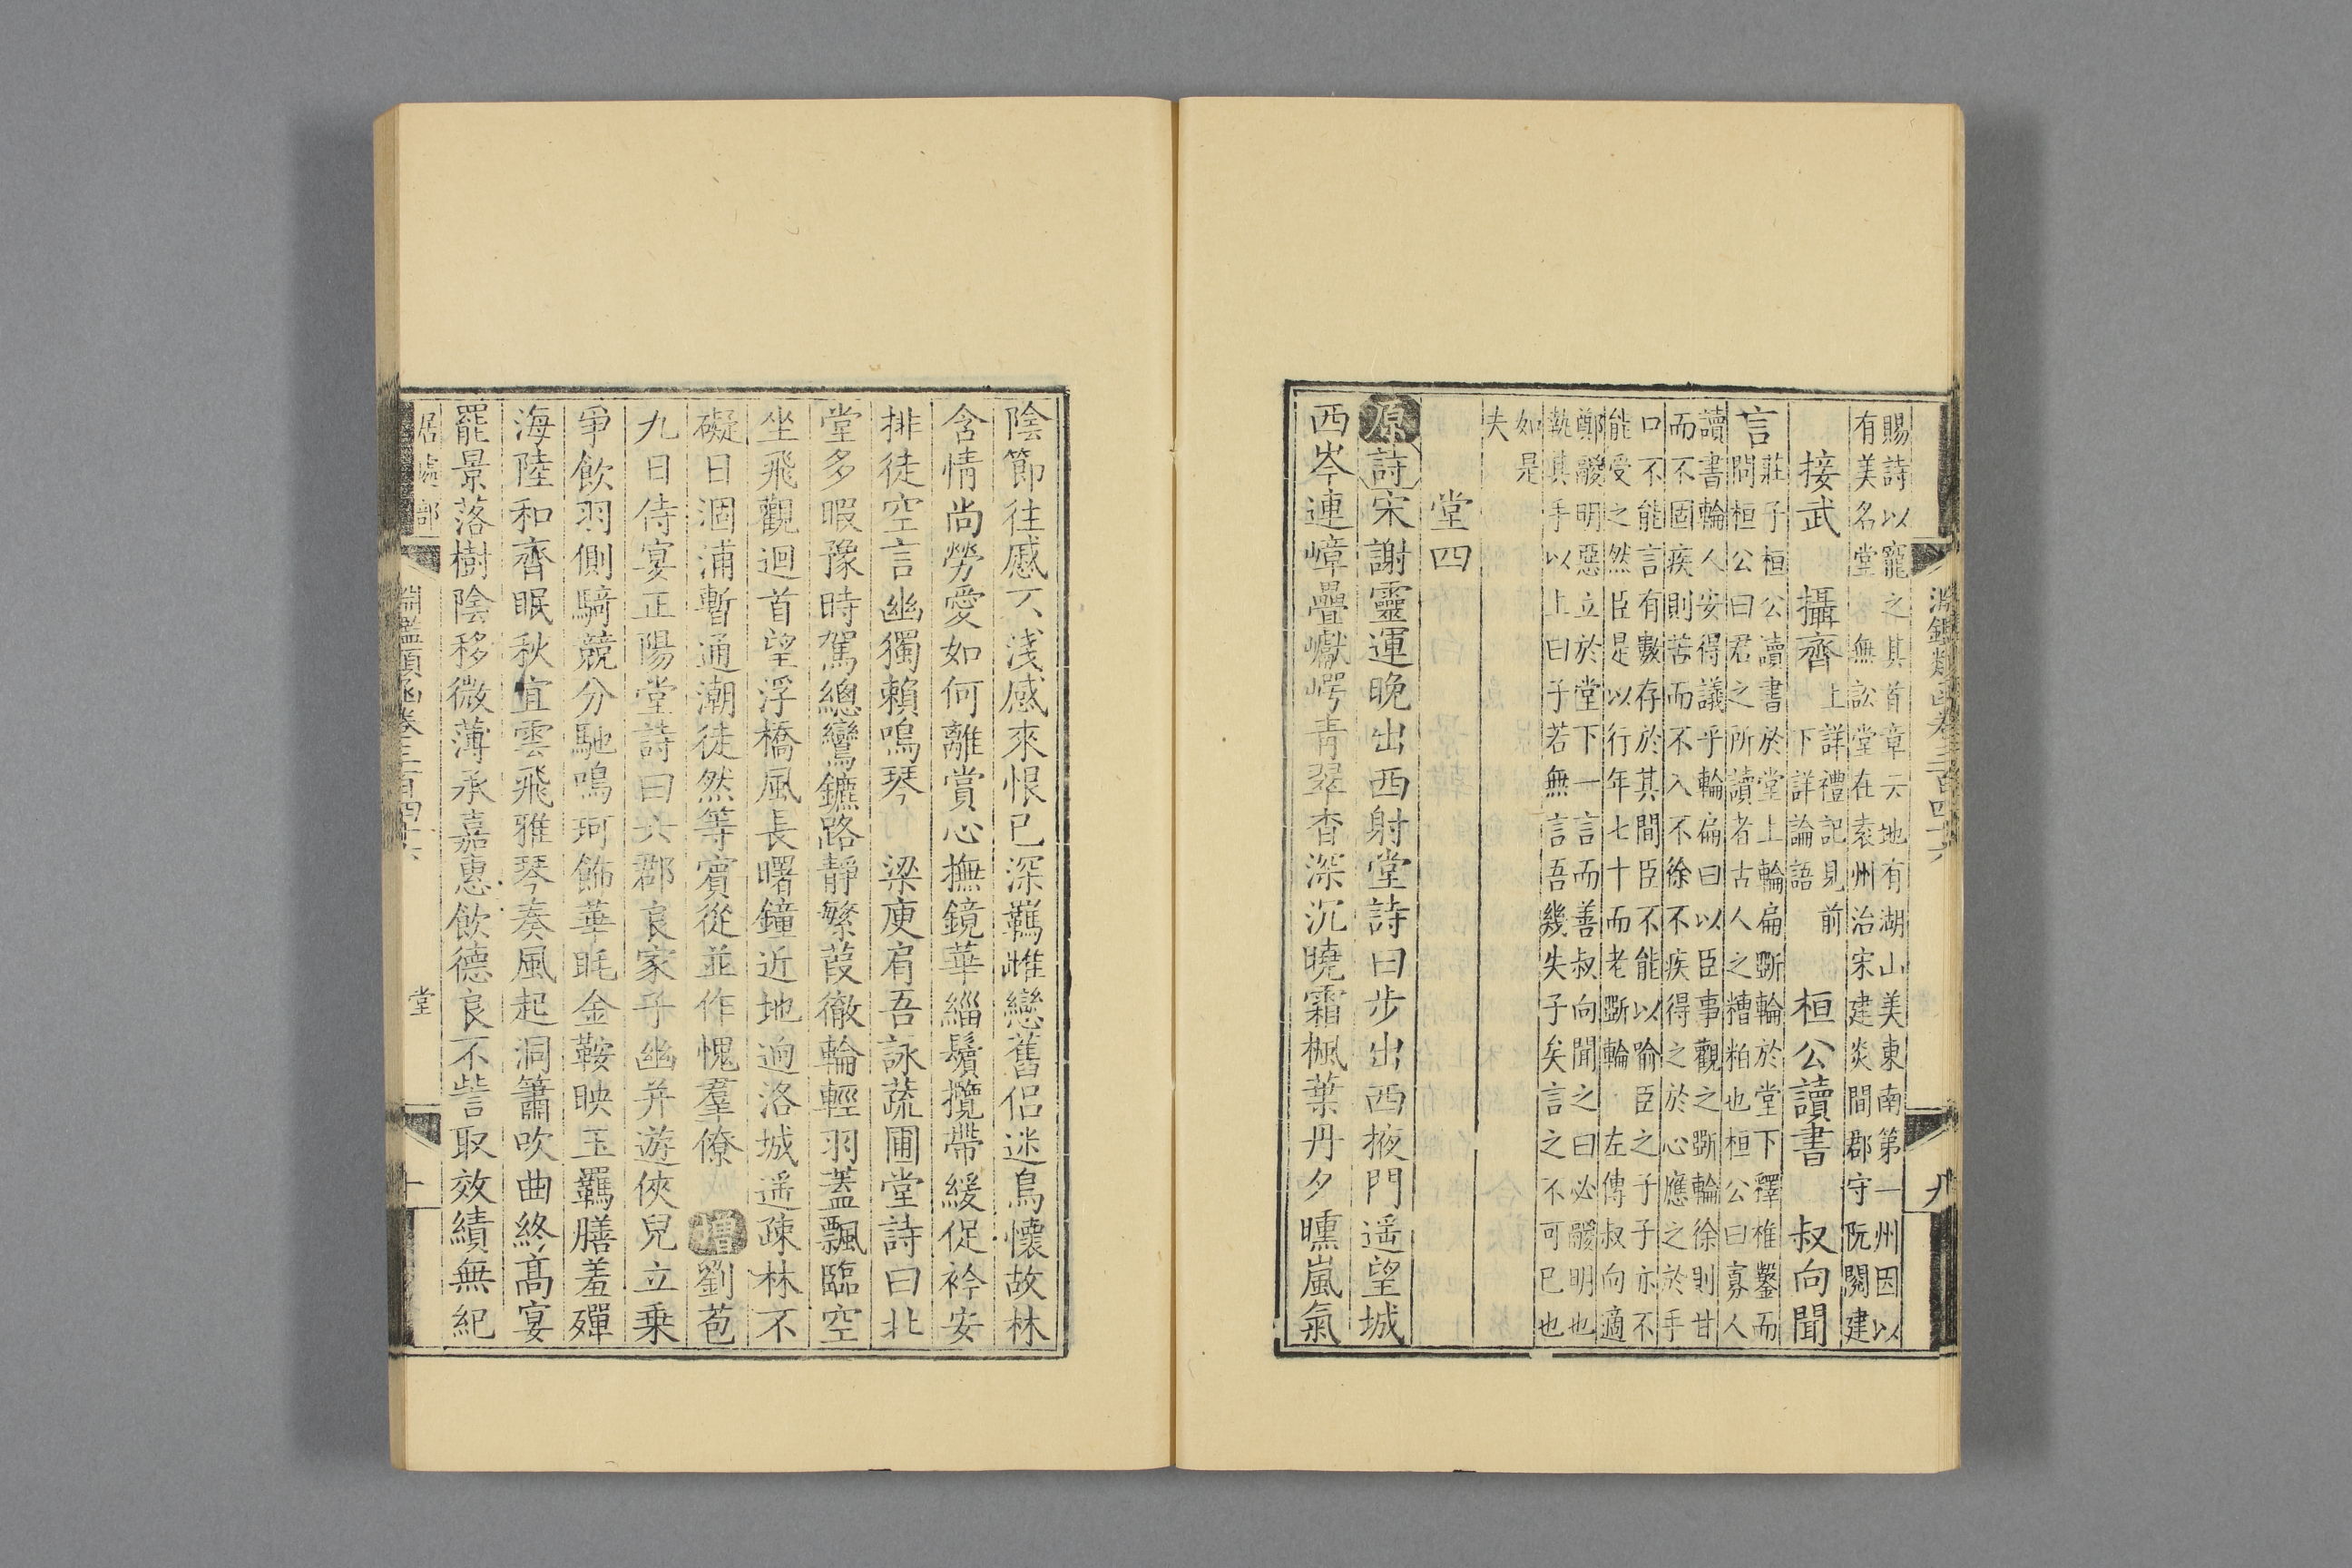 淵鑑類函卷三百四十六
九
賜詩以寵之其首章云地有湖山美東南第一州因以
有美名堂 無訟堂在袁州治宋建炎間郡守阮閱建
接武 攝齊 上詳禮記見前
下詳論語 桓公讀書 叔向聞
言 莊子桓公讀書於堂上輪扁斲輪於堂下釋椎鑿而
問桓公曰君之所讀者古人之糟粕也桓公曰寡人
讀書輪人安得議乎輪扁曰以臣事觀之斲輪徐則甘
而不固疾則苦而不入不徐不疾得之於心應之於手
口不能言有數存於其間臣不能以喻臣之子子亦不
能受之然臣是以行年七十而老斲輪 左傳叔向適
鄭鬷明惡立於堂下一言而善叔向聞之曰必鬷明也
執其手以上曰子若無言吾幾失子矣言之不可已也
如是
夫
堂四
原詩宋謝靈運晚出西射堂詩曰步出西掖門遥望城
西岑連嶂疊巘崿青翠杳深沉曉霜楓葉丹夕曛嵐氣
陰節往慼不淺感來恨已深羈雌戀舊侶迷鳥懷故林
含情尚勞愛如何離賞心撫鏡華緇鬢攬帶緩促衿安
排徒空言幽獨賴鳴琴 梁庾肩吾詠蔬圃堂詩曰北
堂多暇豫時駕總鸞鑣路靜繁葭徹輪輕羽蓋飄臨空
坐飛觀迴首望浮橋風長曙鐘近地迥洛城遥疎林不
礙日涸浦暫通潮徒然等賓從並作愧羣僚 增劉苞
九日侍宴正陽堂詩曰六郡良家子幽并遊俠兒立乘
爭飲羽側騎競分馳鳴珂飾華眊金鞍映玉羈膳羞殫
海陸和齊眠秋宜雲飛雅琴奏風起洞簫吹曲終高宴
罷景落樹陰移微薄承嘉惠飲德良不訾取效績無紀
居處部
淵鑑類函卷三百四十六
堂
十